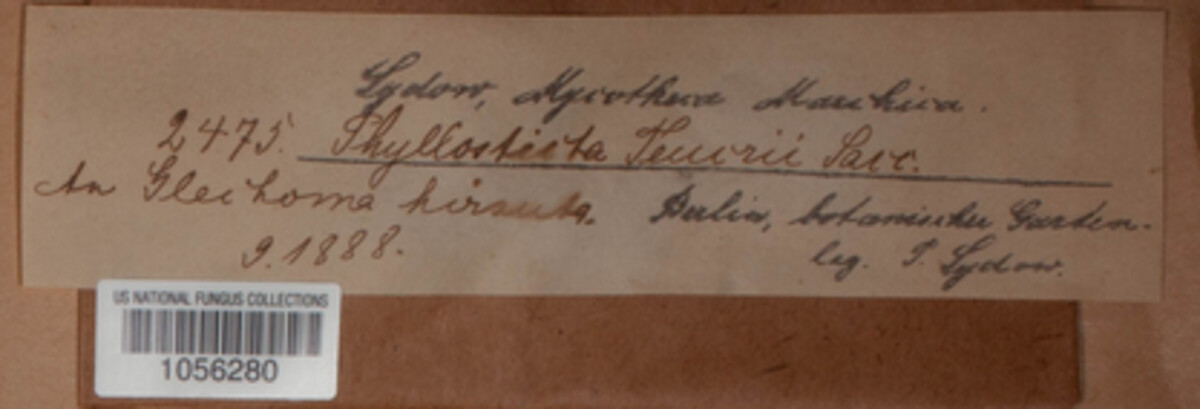 Sydow, Mycotheca Marchica.
2475. Phyllosticta Teucrii Sacc.
An Glechoma hirsuta. Berlin, botanischer Garten.
9.1888. leg. P. Sydow.
US NATIONAL FUNGUS COLLECTIONS
1056280